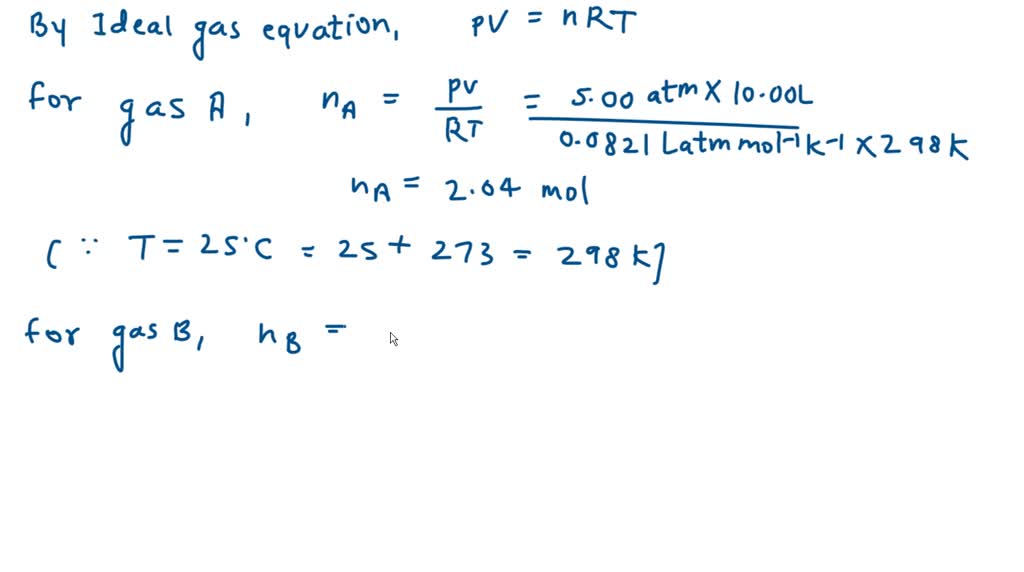 By Ideal gas equation, PV = nRT
for gas A, nA = PV/RT = 5.00 atm X 10.00L / 0.0821 Latm mol-1 k-1 X 298 K
nA = 2.04 mol
( ∵ T = 25°C = 25 + 273 = 298 K]
for gas B, nB =